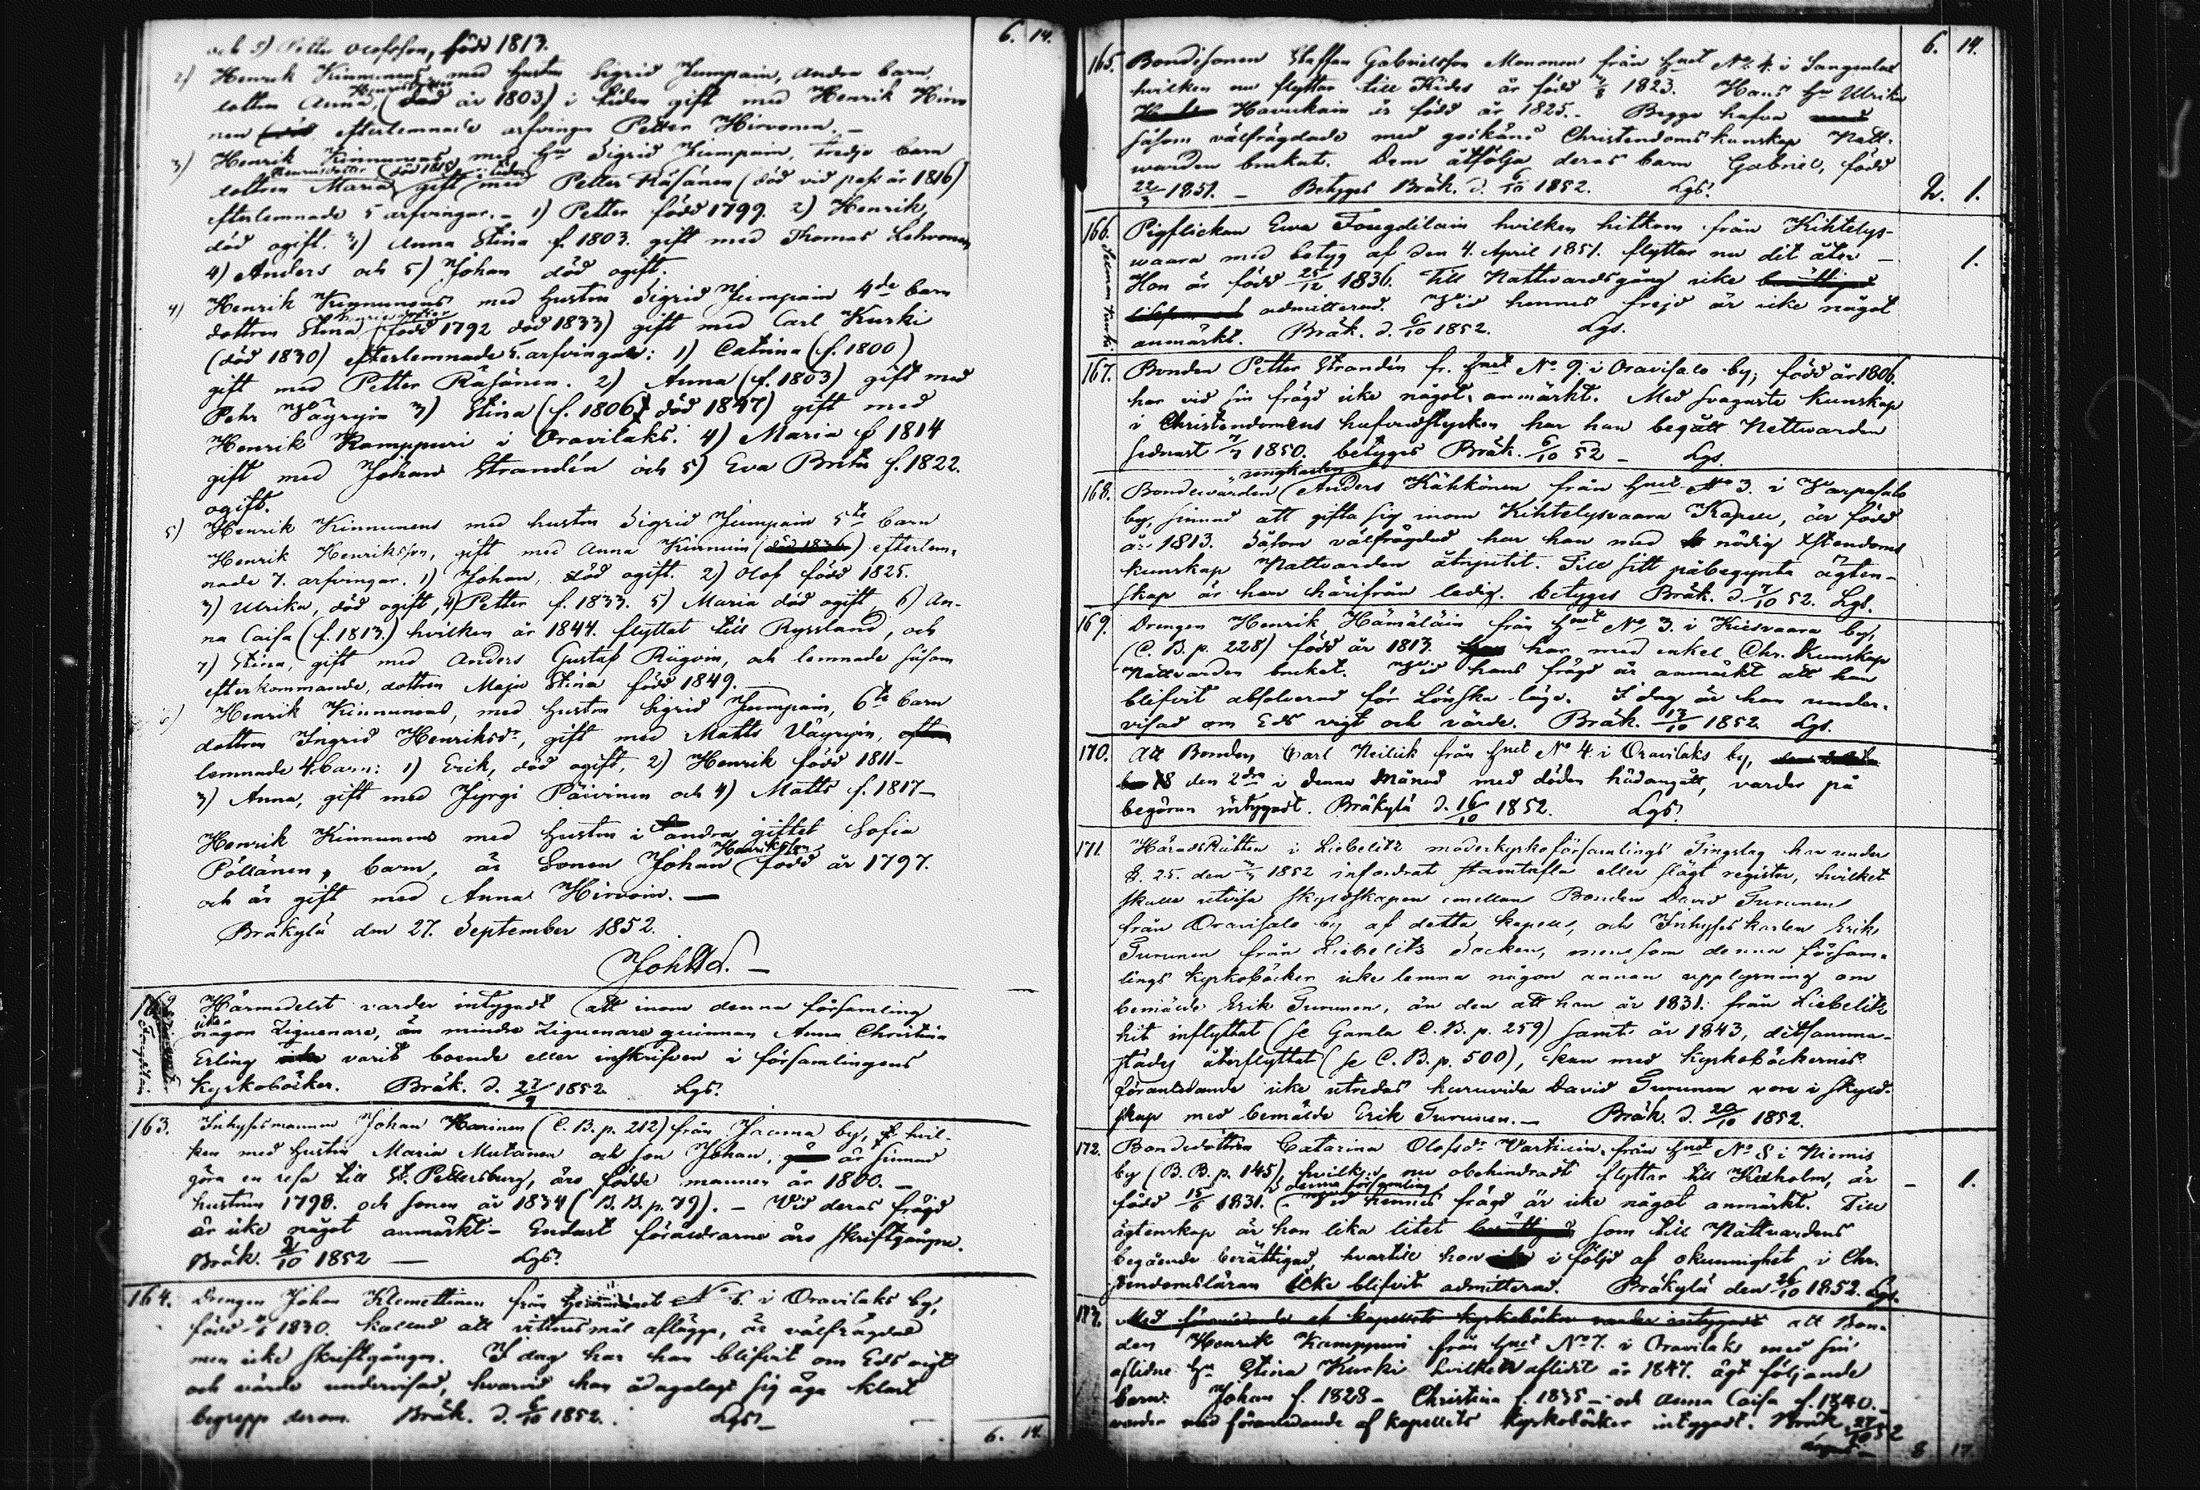 6. 14.
och 5) Petter Olofsson, född 1813.
2) Henrik Kinnunens med hustru Sigrid Jumpain, andra barn,
Henriksdotter
dottren Anna, (död år 1803) i tiden gift med Henrik Hirvo
nen efterlemnade arfvinge Petter Hirvonen. –
3) Henrik Kinnunens med Hu Sigrid Jumpain, tredje barn
Henriksdotter (död 1815) i tiden
dottren Maria gift med Petter Räsänen (död vid pass år 1816)
efterlemnade 5 arfvingar. – 1) Petter född 1799. 2) Henrik,
död ogift. 3) Anna Stina f. 1803. gift med Thomas Lehvonen
4) Anders och 5) Johan död ogift.
4) Henrik Kinnunens med hustru Sigrid Jumpain 4de barn
Henriksdotter
dottren Stina (född 1792 död 1833) gift med Carl Kurki
(död 1830) efterlemnade 5. arfvingar: 1) Catrina (f. 1800)
gift med Petter Räsänen. 2) Anna (f. 1803) gift med
Pehr Väyrynen 3) Stina (f. 1806, död 1847) gift med
Henrik Kamppuri i Oravilaks. 4) Maria f 1814
gift med Johan Strandén och 5) Eva Britta f. 1822.
ogift.
5) Henrik Kinnunens med hustru Sigrid Jumpain 5te barn
Henrik Henriksson, gift med Anna Kinnuin (död 1836) efterlem-
nade 7. arfvingar. 1) Johan, död ogift. 2) Olof född 1825.
3) Ulrika, död ogift, 4) Petter f. 1833. 5) Maria död ogift, 6) An-
na Caisa (f. 1813.) hvilken år 1844. flyttat till Ryssland, och
7) Stina, gift med Anders Gustaf och lemnade såsom
efterkommande, dottren Maja Stina född 1849.
6) Henrik Kinnunens, med hustru Sigrid Jumpain, 6te barn
dottren Ingrid Henriksdr, gift med Matts Väyrynen,
lemnade 4 barn: 1) Erik, död ogift, 2) Henrik född 1811 –
3) Anna, gift med Jyrgi Päivinen och 4) Matts f. 1817 –
Henrik Kinnunens med hustru i andra giftet Sofia
Henriksson
Pöllänen, barn, är Sonen Johan född år 1797.
och är gift med Anna Hirvoin. –
Bräkylä den 27. September 1852.
162. Härmedelst varder intygadt att inom denna församling
icke
någon Ziguenare, än mindre Ziguenare quinnan Anna Christina
Erling varit boende eller inskrifven i församlingens
kyrkoböcker. Bräk. d. 27/9 1852 Lgs.
163. Inhysesmannen Johan Karinen (C. B. p. 212) från Jaama by, hvil-
ken med hustru Maria Mutanen och son Johan, är sinnad
göra en resa till St. Pettersburg, äro födde mannen år 1800. –
hustrun 1798. och sonen år 1834 (B. B. p. 79). – Vid deras frägd
är icke något anmärkt – Endast föräldrarne äro skriftgångne.
Bräk. 2/10 1852 — Lgs.
164. Drengen Johan Klemettinen från Hemmanet No 6. i Oravilaks by,
född 1830. kallad att vittnesmål aflägga, är välfrägdad
men icke skriftgången. I dag har han blifvit om Eds vigt
och värde undervisad, hvarvid han ådagalagt sig äga klart
begrepp derom. Bräk. d. 6/10 1852. Lgs. –
6. 14.
6. 14.
165. Bondesonen Staffan Gabrielsson Mononen från Hmet No 4. i
hvilken nu flyttar till Kides är född 1823. Hans Hu Ulrika
Havukain är född år 1825. – Begge hafva
såsom välfrägdade med godkänd Christendoms kunskap Natt-
warden brukat. Dem åtfölja deras barn Gabriel, född
22/3 1851. – Betyges Bräk. d. 6/10 1852. Lgs. 2. 1.
166. Pigflickan Ewa Tougdilain hvilken hitkom från Kihtelys-
waara med betyg af den 4. April 1851. flyttar nu dit åter – 1.
Hon är född 25/12 1836. Till Nattvardsgång icke
admitterad. Vid hennes frejd är icke något
anmärkt. Bräk. d. 6/10 1852. Lgs.
167. Bonden Petter Strandén fr. Hmet No 9. i Oravisalo by, född år 1806.
har vid sin frägd icke något anmärkt. Med svagaste kunskap
i Christendomens hufvudstycken har han begått Nattwarden
sednast 1850. betyges Bräk. 6/10 52 – Lgs.
ungkarlen
168. Bondewärden Anders Kähkönen från Hmet No 3. i Varpasalo
by, sinnad att gifta sig inom Kihtelysvaara Kapell, är född
år 1813. Såsom välfrägdad har han med nödig Xstendoms
kunskap Nattvarden åtnjutit. Till sitt påbegynta ägten-
skap är han härifrån ledig. betyges Bräk. d. 7/10 52. Lgs.
169. Drengen Henrik Hämäläin från Hmet No 3. i Kiesvaara by,
(C. B. p. 228) född år 1813. har med enkel Chr. kunskap
Nattvarden brukat. Vid hans frägd är anmärkt att han
blifvit absolverad för Lönska-läge. I dag är han under-
visad om Eds vigt och värde. Bräk. 13/10 1852. Lgs.
170. Att Bonden Carl Neilick från Hmet No 4. i Oravilaks by,
den 2dra i denna Månad med döden hädangått, varder på
begäran intygadt. Bräkylä d. 16/10 1852. Lgs.
171. HäradsRätten i Liebelitz moderkyrkoförsamlings Tingslag har under
§. 25. den 1852 infordrat stamtafla eller slägt register, hvilket
skulle utvisa skyldskapen emellan Bonden David Turunen
från Oravisalo by af detta kapell, och Inhyses karlen Erik
Turunen från Liebelitz Socken, men som denna försam-
lings kyrkoböcker icke lemna någon annan upplysning om
bemälde Erik Turunen, än den att han år 1831. från Liebelitz
hit inflyttat (se Gamla C. B. p. 259) samt år 1843, ditsamma-
städes återflyttat (se C. B. p. 500), kan med kyrkobökernes
föranledande icke utredas huruvida David Turunen vore i skyld-
skap med bemälde Erik Turunen. – Bräk. d. 20/10 1852.
172. Bondedottren Catarina Olofsdr Vartiain från Hmet No 8 i Niemis
by (B. B. p. 145), hvilken nu obehindradt flyttar till Kexholm, är – 1.
denna församling
född 15/6 1831. Vid hennes frägd är icke något anmärkt. Till
ägtenskap är hon lika litet som till Nattvardens
begående berättigad, hvartill hon i följd af okunnighet i Chr.
stendomsläran icke blifvit admitterad. Bräkylä den 26/10 1852. Lgs.
173. Med föranledande af kapellets kyrkoböcker varder intygadt att Bon-
den Henrik Kamppuri från Hmet No 7. i Oravilaks med sin
aflidne Hu Stina Kurki hvilken aflidit år 1847. ägt följande
barn: Johan f. 1828 – Christina f. 1835 – och Anna Caisa f. 1840. –
warder med föranledande af kapellets kyrkoböcker intygadt. Bräk. 27/10 52
8 17.